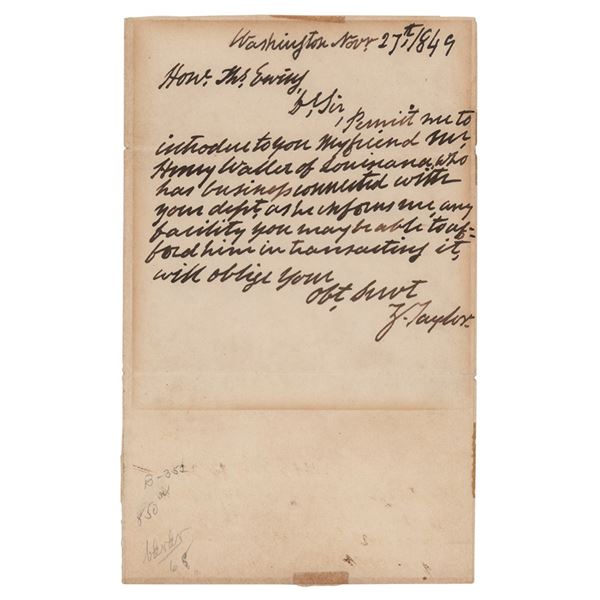 Washington Novr. 27th, 1849
Honr. Ths. Ewing,
Dr. Sir,
Permit me to
introduce to you my friend Mr,
Henry Waller of Louisiana, who
has business connected with
your dept, as he informs me, any
facility you may be able to af-
ford him in transacting it,
will oblige your
Obt, Servt
Z. Taylor.
B-352
850
68